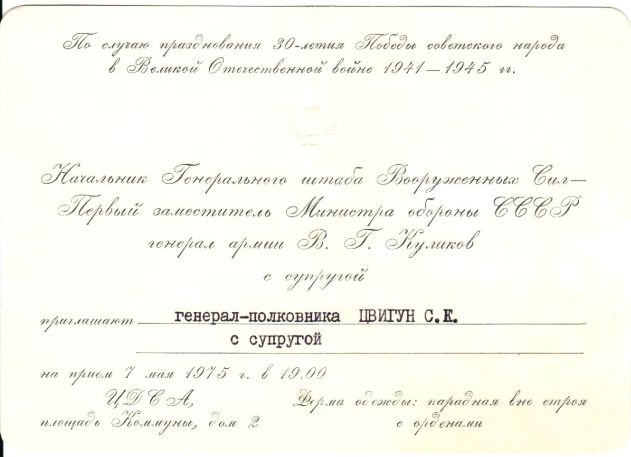 По случаю празднования 30-летия Победы советского народа
в Великой Отечественной войне 1941—1945 гг.
Начальник Генерального штаба Вооруженных Сил—
Первый заместитель Министра обороны СССР
генерал армии В. Г. Куликов
с супругой
приглашают генерал-полковника ЦВИГУН С.К.
с супругой
на прием 7 мая 1975 г. в 19.00
ЦДСА, Форма одежды: парадная вне строя
площадь Коммуны, дом 2 с орденами